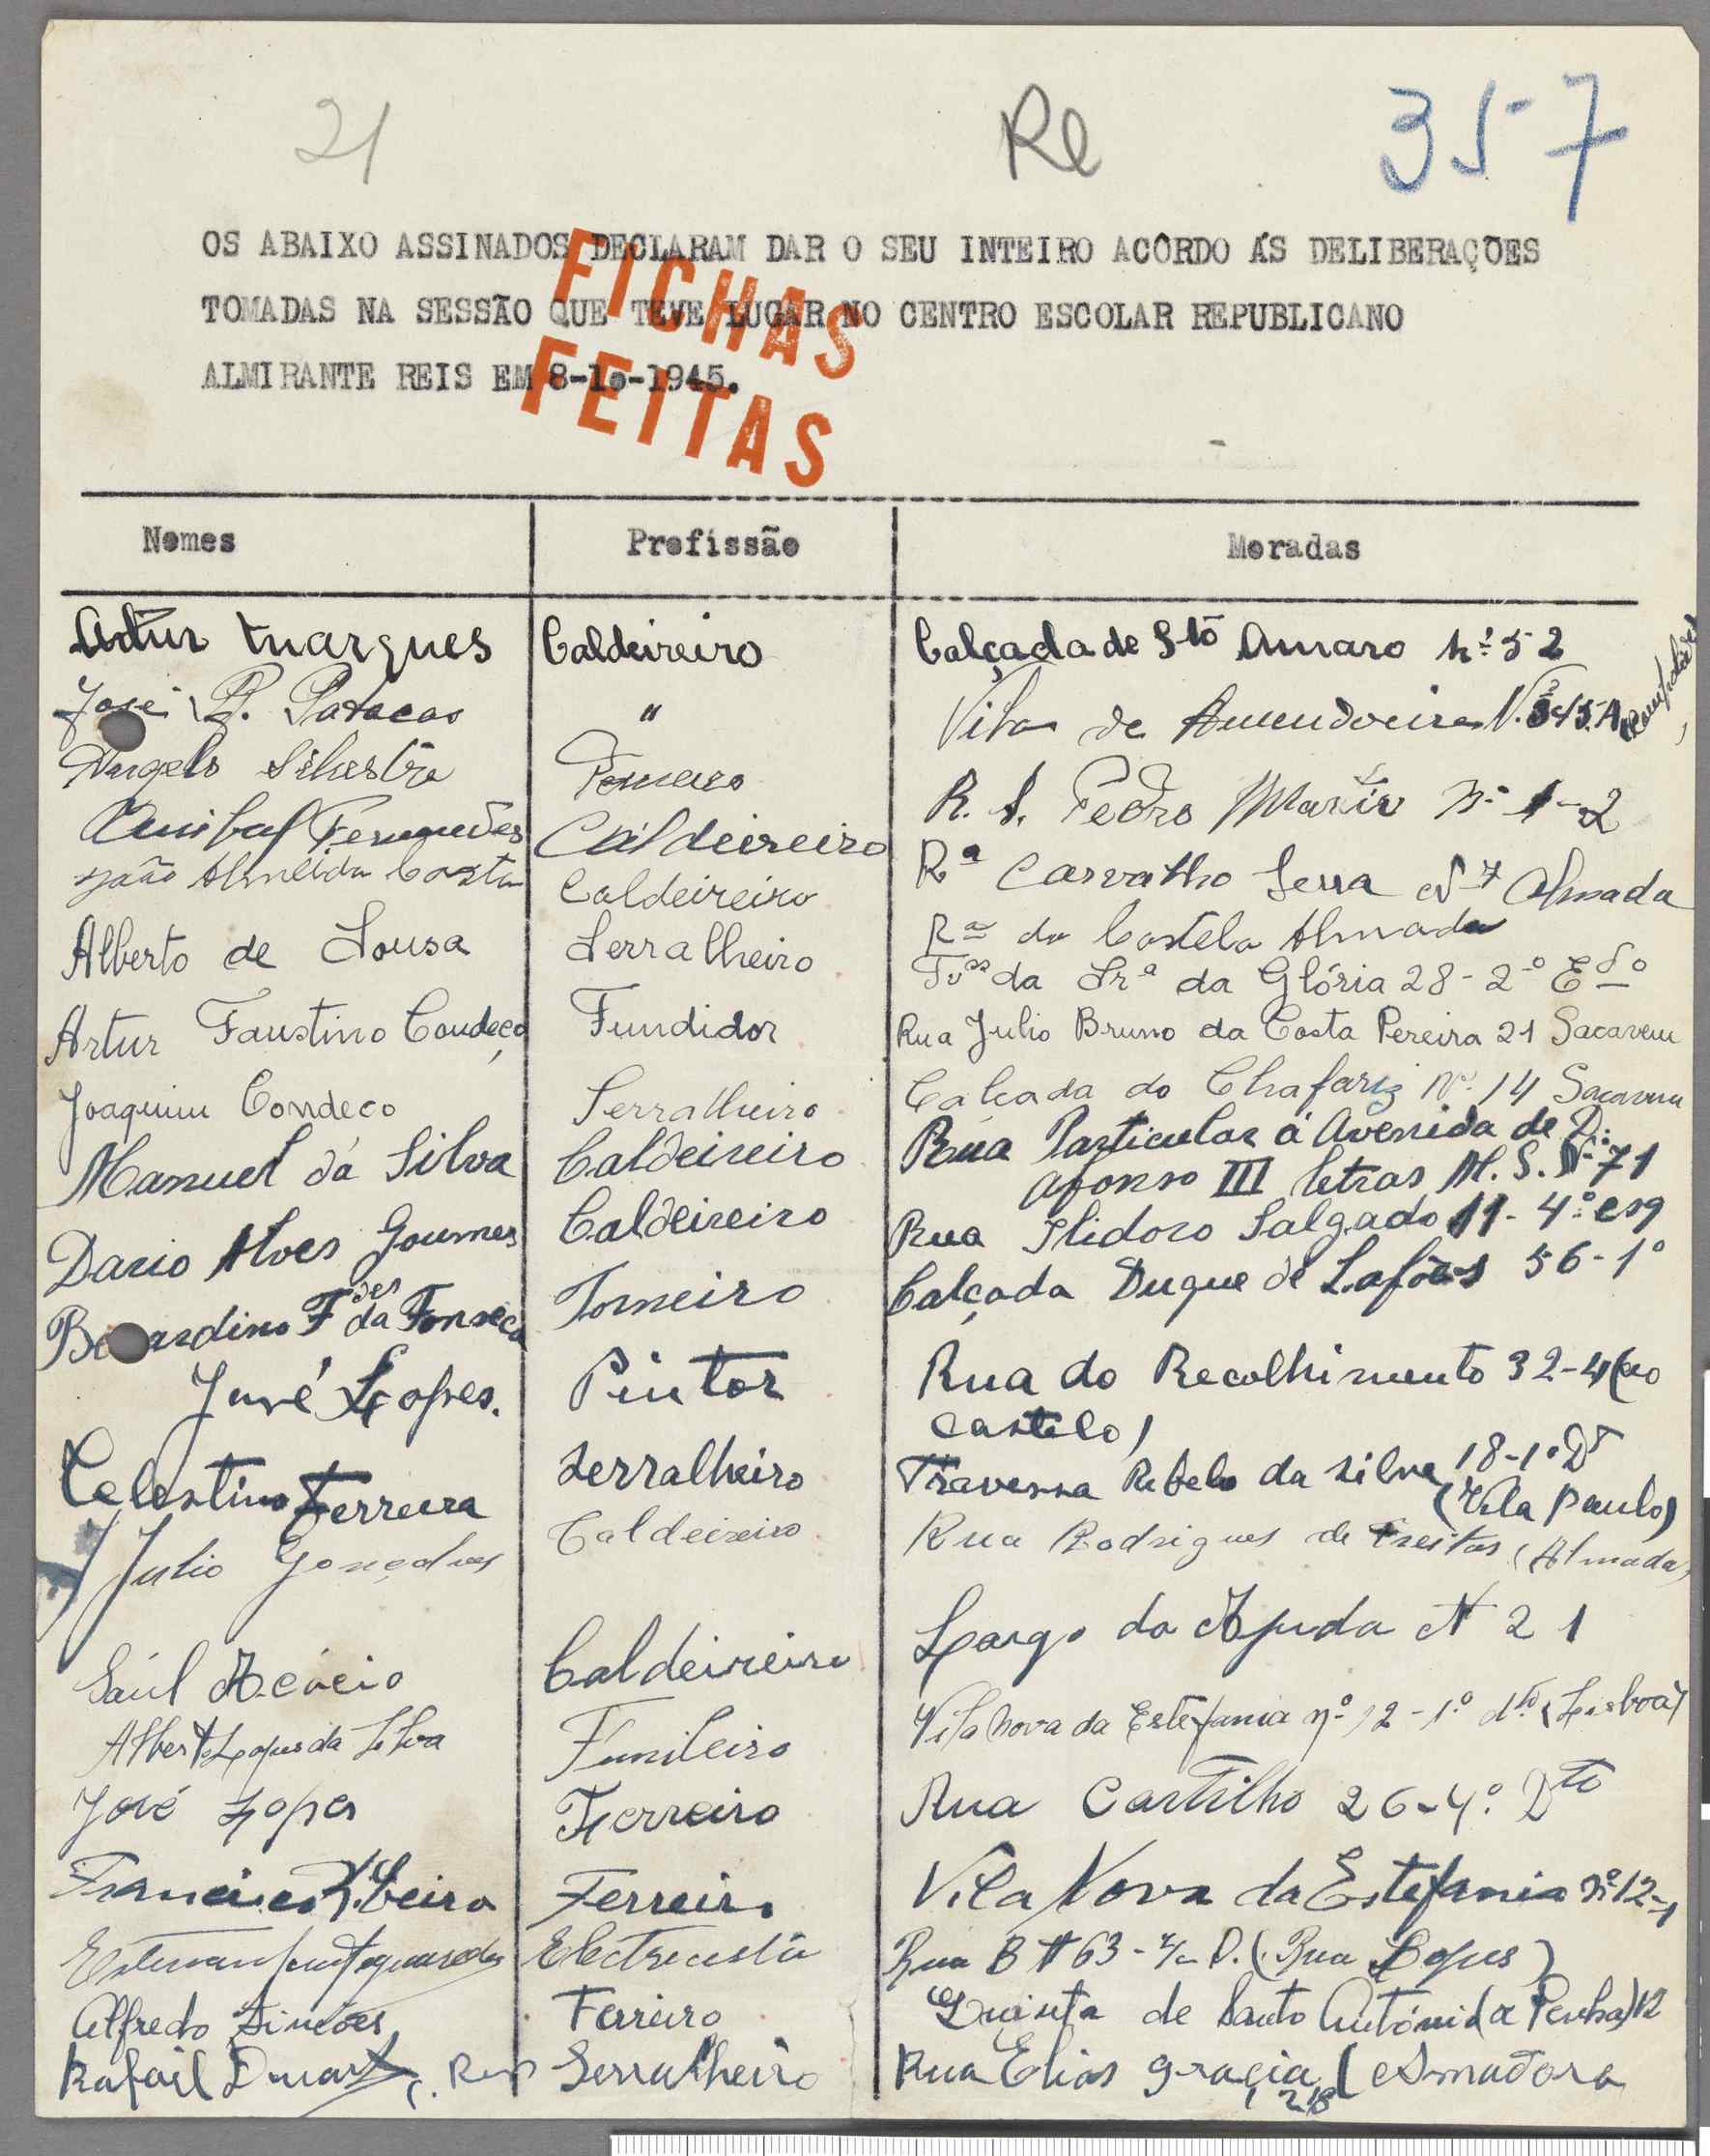 21
Re
357
OS ABAIXO ASSINADOS DECLARAM DAR O SEU INTEIRO ACÔRDO ÁS DELIBERAÇÕES
TOMADAS NA SESSÃO QUE TEVE LUGAR NO CENTRO ESCOLAR REPUBLICANO
ALMIRANTE REIS EM 8-10-1945.
FICHAS
FEITAS
Nomes Profissão Moradas
Artur Marques Caldeireiro Calçada de Stº Amaro nº 52
José P. Patacas " Vila de Amendoeira N.
Angelo Silvestre R. S. Pedro Martir Nº 1-2
Anibal Fernandes Caldeireiro Rª Carvalho Serra Nº 7 Almada
João Almeida Costa Caldeireiro Rª do Castelo Almada
Alberto de Sousa Serralheiro da Srª da Glória 28-2º Esº
Artur Faustino Condeço Fundidor Rua Julio Bruno da Costa Pereira 21 Sacavem
Joaquim Condeco Serralheiro Calçada do Chafariz Nº 14 Sacavem
Manuel da Silva Caldeireiro Rua Particular á Avenida de D.
Afonso III letras M. S. Nº 71
Dario Alves Goumes Caldeireiro Rua Ilidoro Salgado 11-4º esq
Bernardino Fdes da Fonseca Torneiro Calçada Duque de Lafões 56-1º
José Lopes. Pintor Rua do Recolhimento 32-4 (ao
Castelo)
Celestino Ferreira Serralheiro Travessa Rebelo da Silva 18-1º Dt
(Vila Paulo)
Julio Gonçalves Caldeireiro Rua Rodrigues de Freitas (Almada)
Saúl Acácio Caldeireiro Largo da Ajuda Nº 21
Alberto Lopes da Silva Funileiro Vila Nova da Estefania nº 12-1º dtº (Lisboa)
José Lopes Ferreiro Rua Castilho 26-4º. Dto
Francisco Ribeiro Ferreiro Vila Nova da Estefania nº 12-1
Electricista Rua B Nº 63 - D. (Rua Lopes)
Alfredo Simões Ferreiro Quinta de Santo António (á Penha) 12
Rafail Duarte Serralheiro Rua Elias gracia (Amadora
218